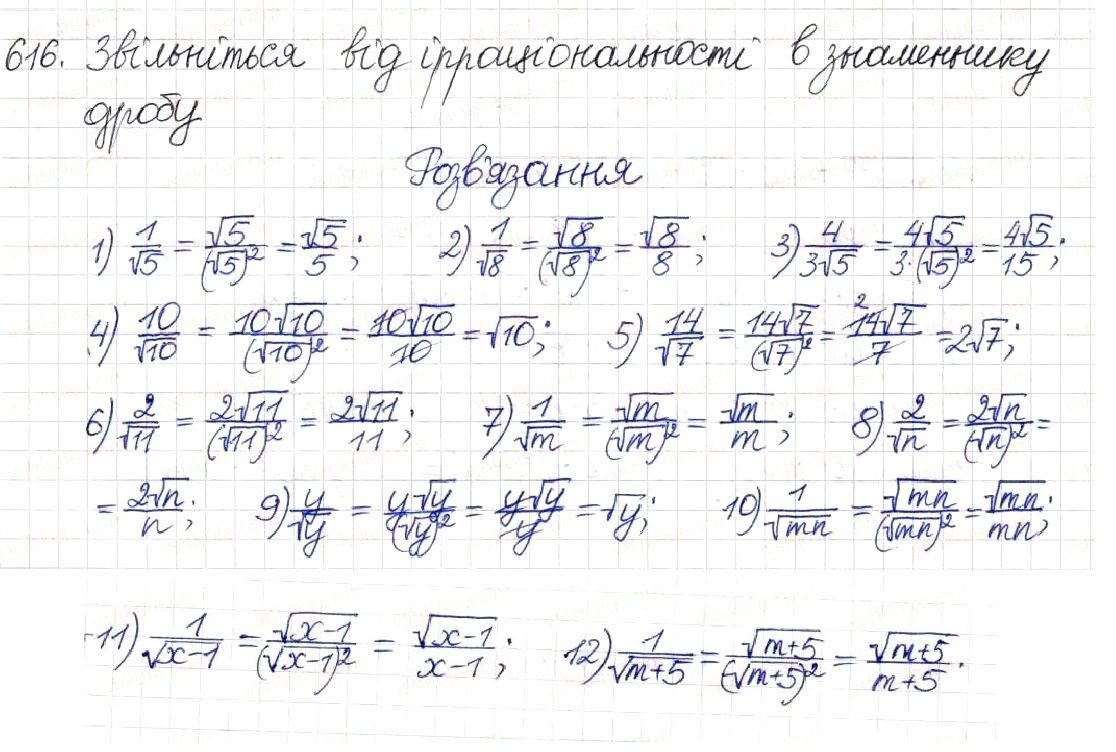 616. Звільніться від ірраціональності в знаменнику
дробу
Розв'язання
1) 1/√5 = √5/(√5)² = √5/5; 2) 1/√8 = √8/(√8)² = √8/8; 3) 4/3√5 = 4√5/3·(√5)² = 4√5/15;
4) 10/√10 = 10√10/(√10)² = 10√10/10 = √10; 5) 14/√7 = 14√7/(√7)² = 2 14√7/7 = 2√7;
6) 2/√11 = 2√11/(√11)² = 2√11/11; 7) 1/√m = √m/(√m)² = √m/m; 8) 2/√n = 2√n/(√n)² =
= 2√n/n; 9) y/√y = y√y/(√y)² = y√y/y = √y; 10) 1/√mn = √mn/(√mn)² = √mn/mn;
11) 1/√x-1 = √x-1/(√x-1)² = √x-1/x-1; 12) 1/√m+5 = √m+5/(√m+5)² = √m+5/m+5.